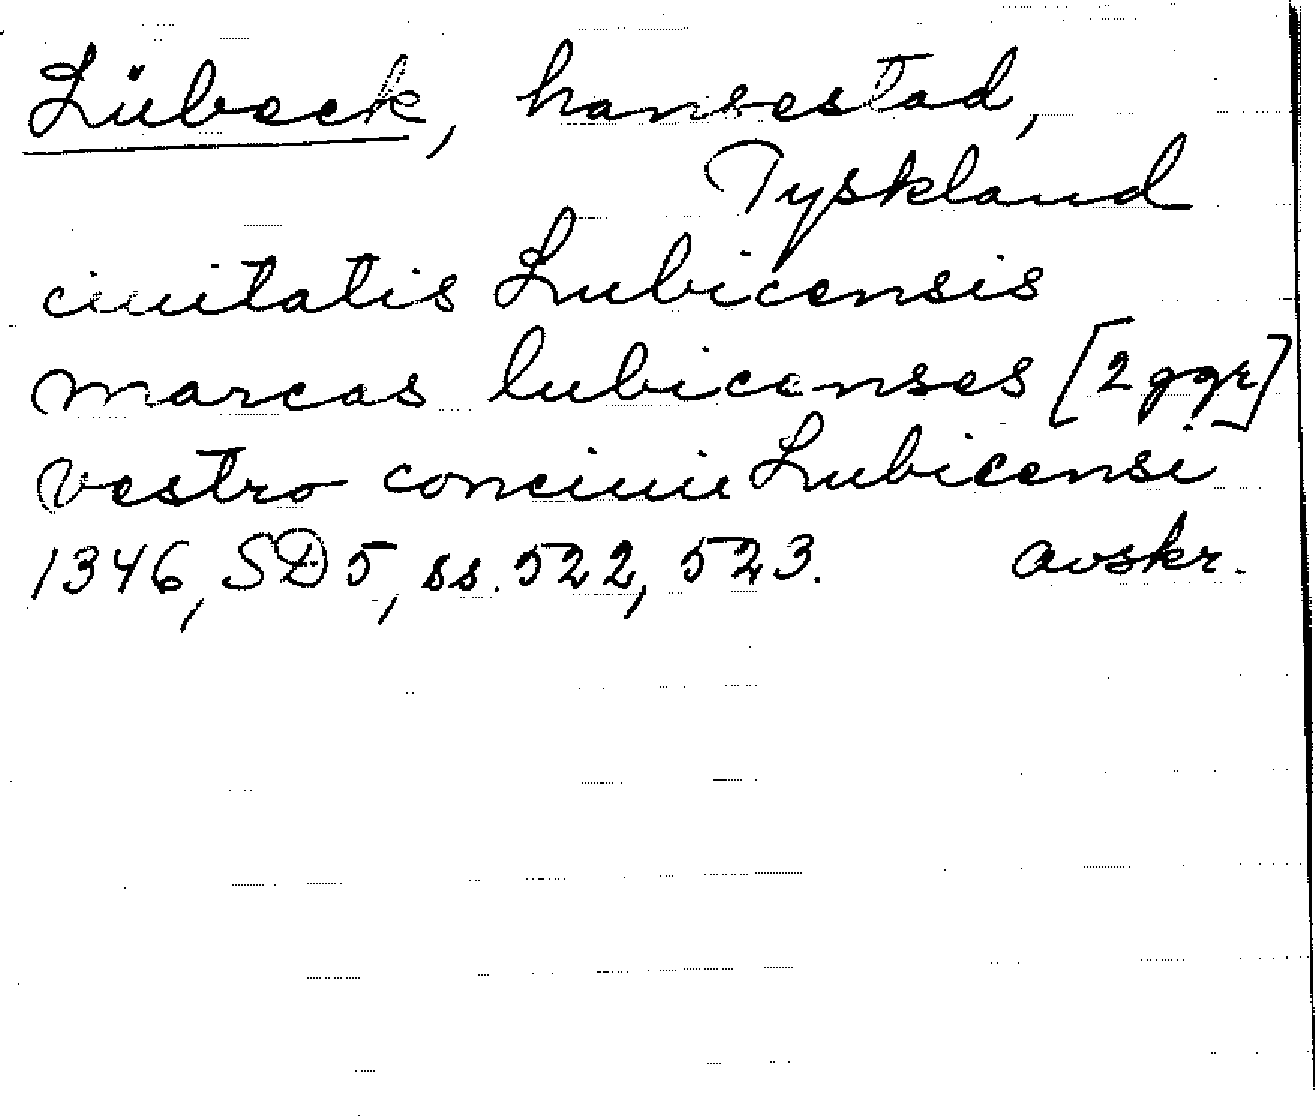 Lübeck, hansestad,
Tyskland
ciuitatis Lubicensis
marcas lubicenses [2 ggr]
vestro conciuui Lubicensi
1346, SD 5, ss. 522, 523. avskr.